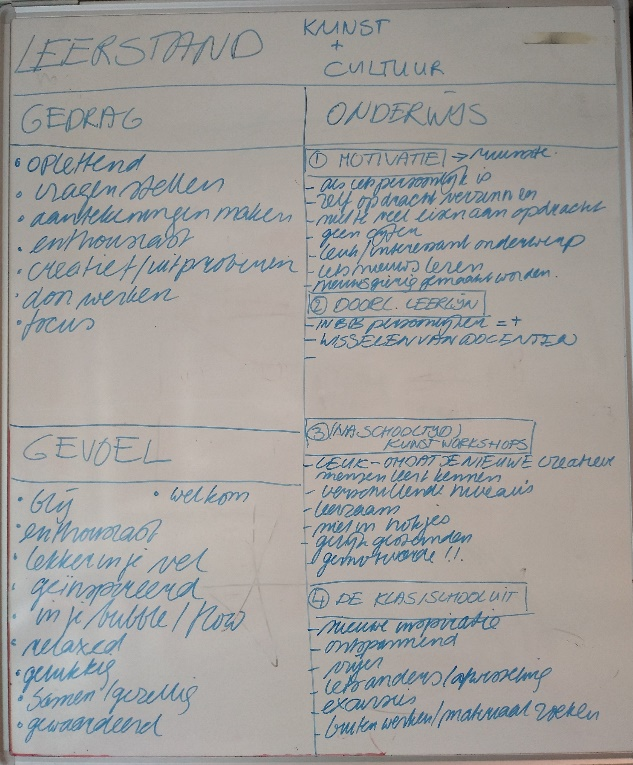 LEERSTAND
KUNST
+
CULTUUR
GEDRAG
• oplettend
• vragen stellen
• aantekeningen maken
• enthousiast
• creatief/uitproberen
• door werken
• focus
GEVOEL
• blij
• welkom
• enthousiast
• lekker in je vel
• geïnspireerd
• in je bubble/flow
• relaxed
• gelukkig
• samen/gezellig
• gewaardeerd
ONDERWIJS
① MOTIVATIE →
- als iets persoonlijk is
- zelf opdracht verzinnen
- niet te veel eisen aan opdracht
- geen cijfers
- leuk/interessant onderwerp
- iets nieuws leren
- nieuwsgierig gemaakt worden.
② DOORL. LEERLIJN
- in BB = +
- WISSELEN VAN DOCENTEN
-
③ (NASCHOOLTIJD)
KUNSTWORKSHOPS
- LEUK - OMDAT JE NIEUWE creatieve
mensen leert kennen
- verschillende niveaus
- leerzaam
- niet in hokjes
- gelijkgezinden
- gemotiveerde !!
④ DE KLAS/SCHOOL UIT
- nieuwe inspiratie
- ontspannend
- vrijer
- iets anders/afwisseling
- excursies
- buiten werken/materiaal zoeken